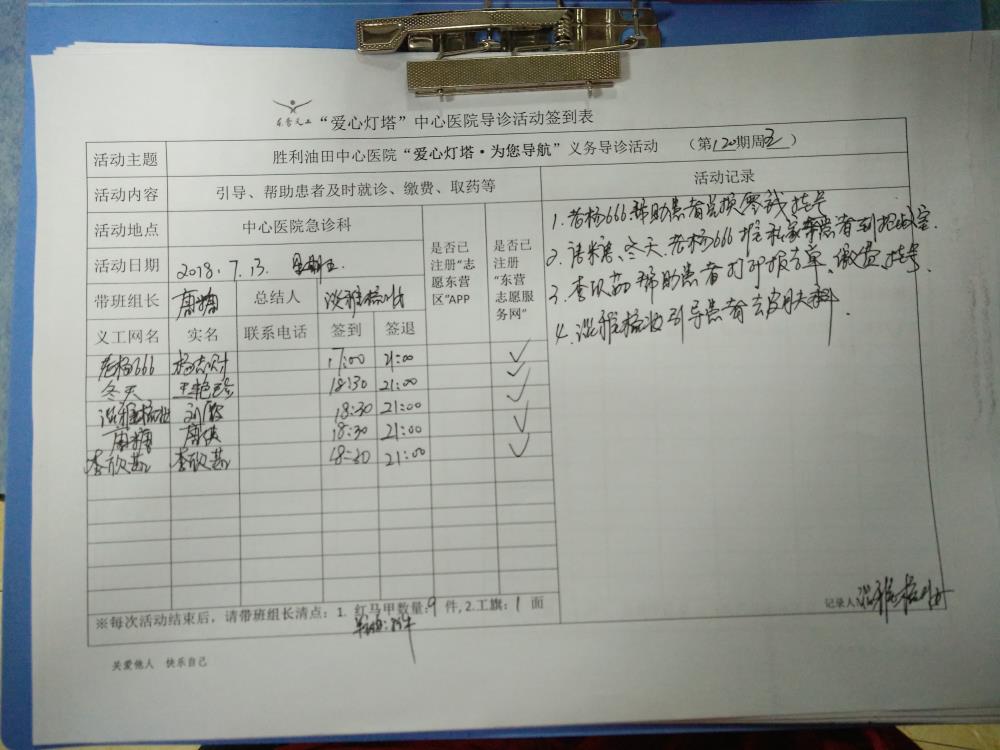 东营义工 “爱心灯塔”中心医院导诊活动签到表
活动主题 胜利油田中心医院“爱心灯塔·为您导航”义务导诊活动 （第120期周五）
活动内容 引导、帮助患者及时就诊、缴费、取药等 活动记录
活动地点 中心医院急诊科 是否已注册“志愿东营区”APP 是否已注册“东营志愿服务网”
活动日期 2018.7.13. 星期五.
带班组长 唐糖 总结人
义工网名 实名 联系电话 签到 签退
老杨666 17:00 21:00 ✓
冬天 18:30 21:00 ✓
18:30 21:00 ✓
唐糖 18:30 21:00 ✓
李欣 李欣 18:30 21:00 ✓
1. 老杨666帮助患者兑换零钱挂号
2. 唐糖、冬天、老杨666 患者到
3. 李欣 帮助患者打印报告单、缴费、挂号.
4. 引导患者去皮肤科.
记录人：
※每次活动结束后，请带班组长清点：1. 红马甲数量：9 件，2.工旗：1 面
关爱他人 快乐自己